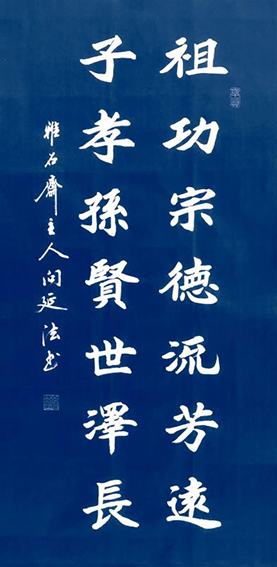 祖功宗德流芳遠
子孝孫賢世澤長
雅石齋主人閆延法书